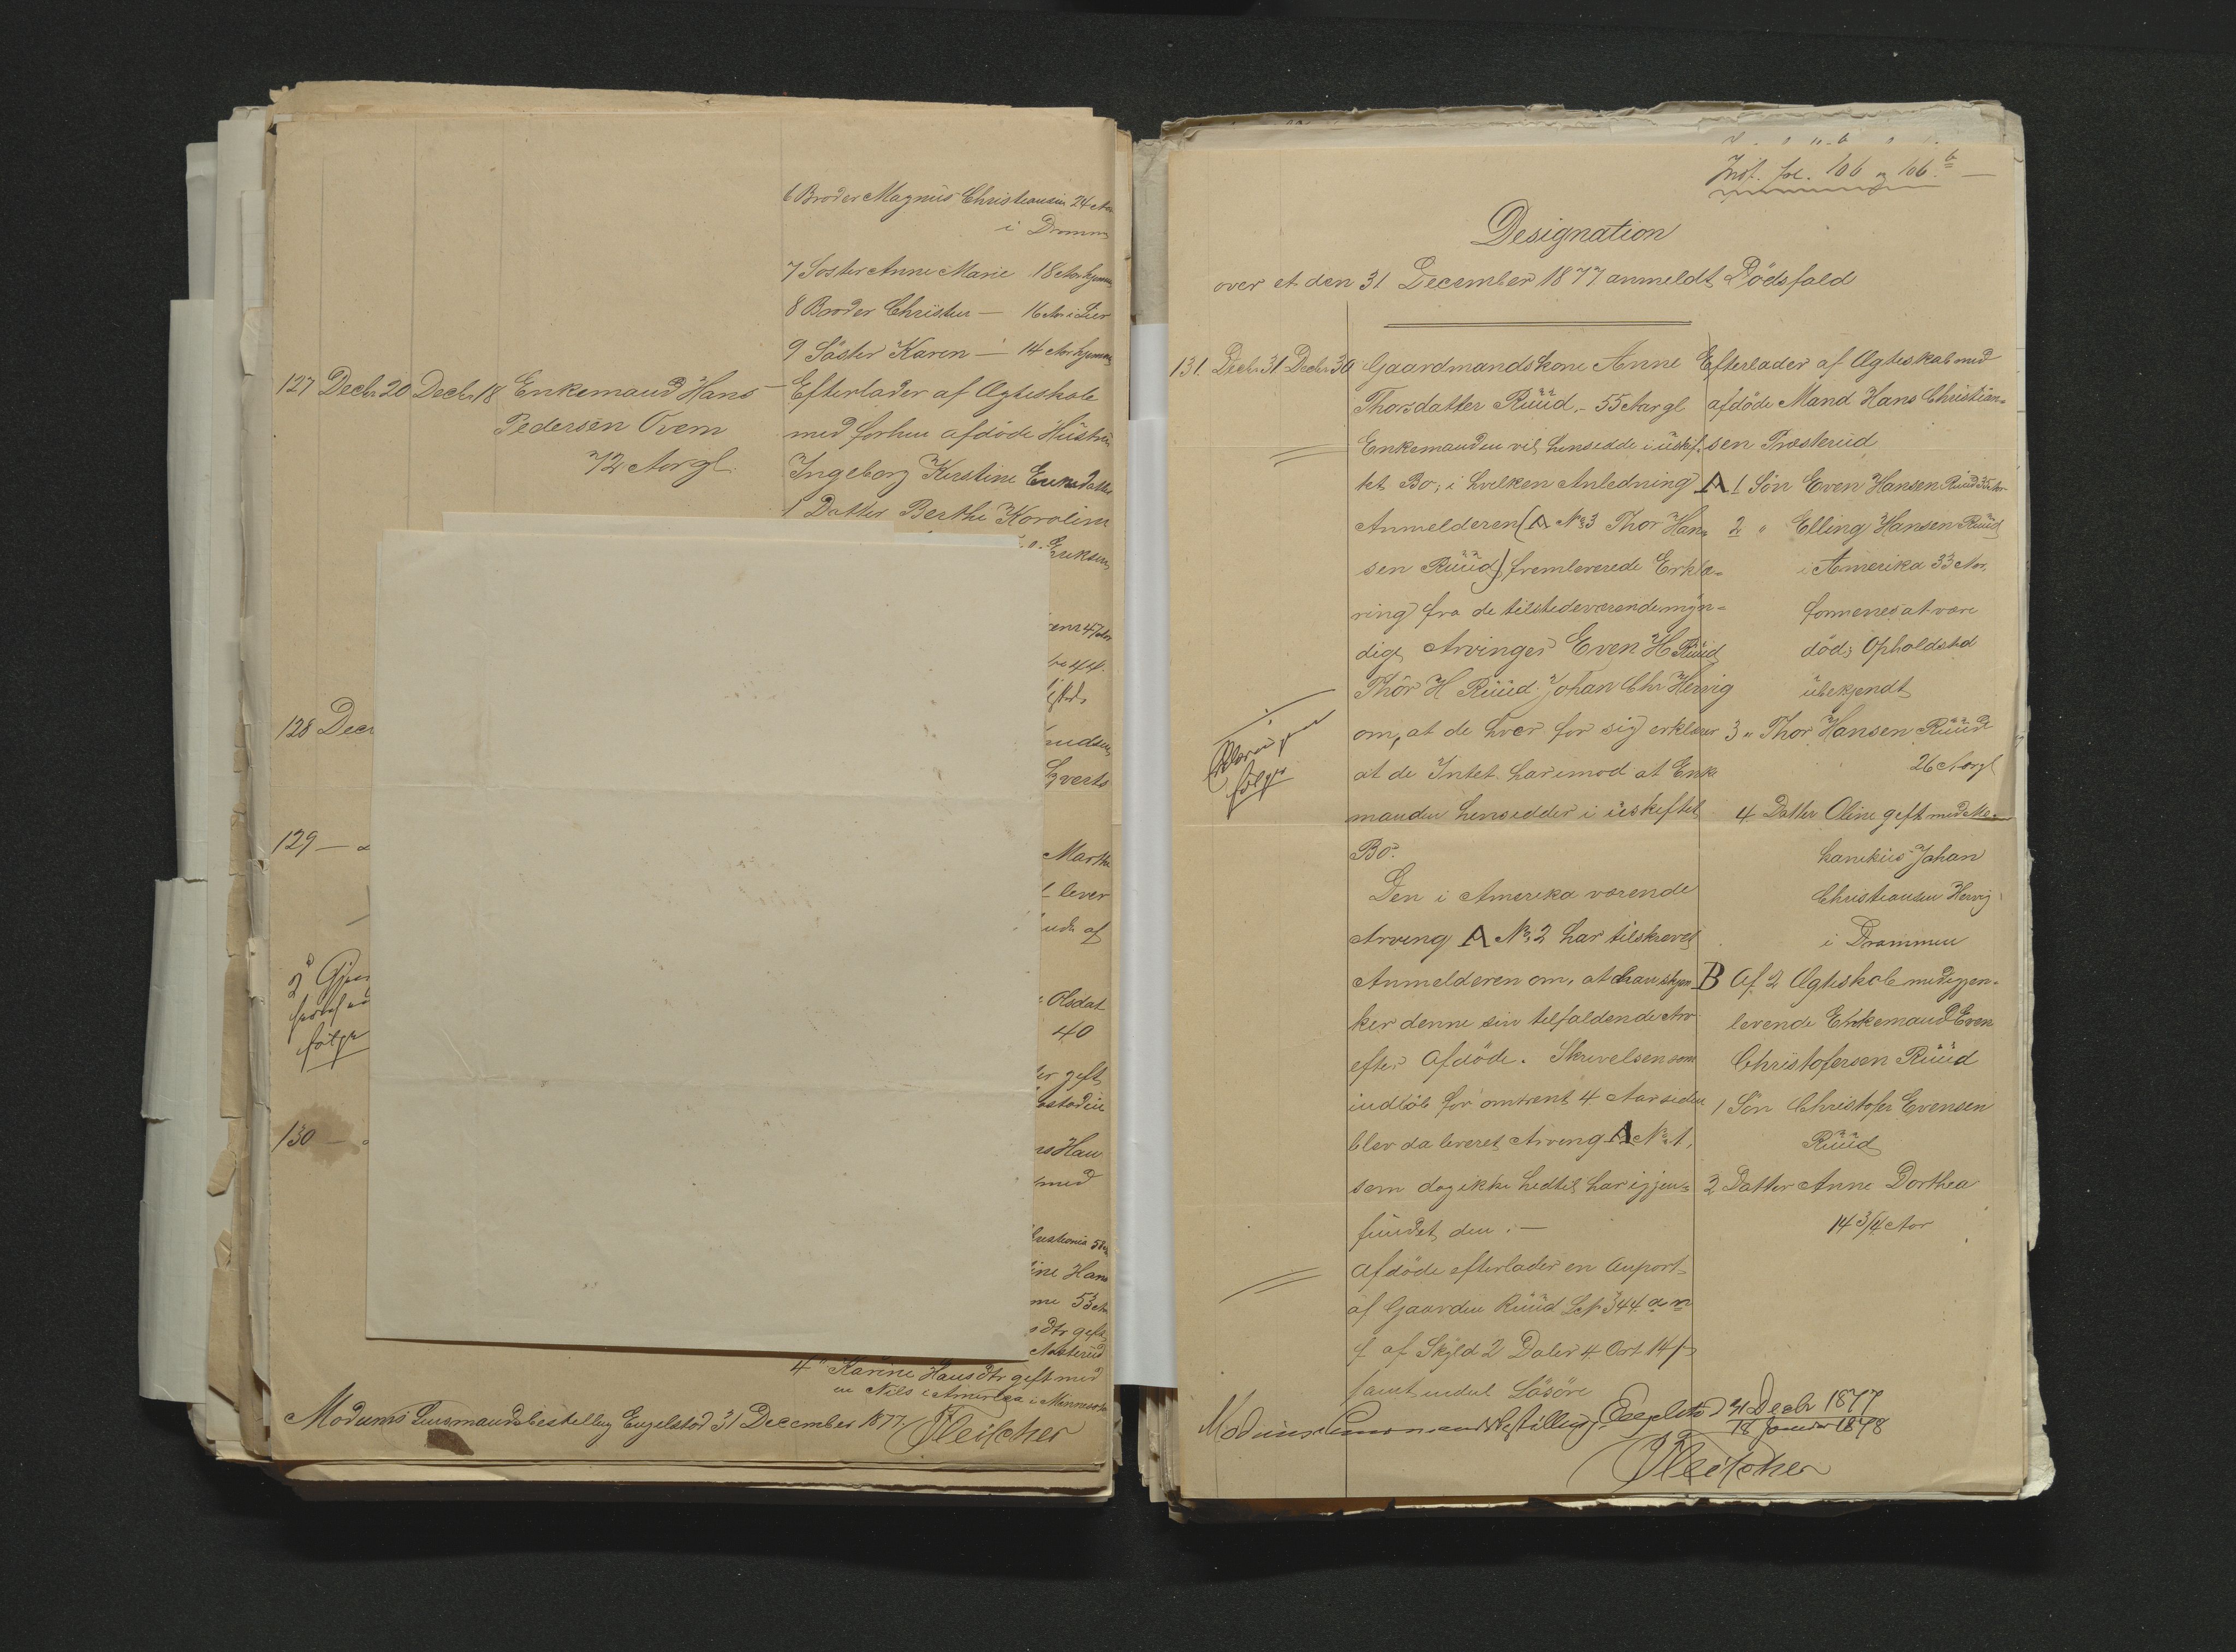 6 Broder Magnus Christiansen 24 Aar
i Dramm
7 Søster Anne Marie 18 Aar hjemme
8 Broder Christen — 16 Aar i Lier
9 Søster Karen — 14 Aar hjemme
127 Decbr 20 Decbr 18 Enkemand Hans
Pedersen Ovem
72 Aar gl.
Efterlader af Ægteskab
med forhen afdöde Hüstrü
Ingeborg Kirstine
1 Datter Berthe Karoline
Eriksen
47 Aar
44.
128 Decr
udsen
verts
129 —
Marthe
lever
af
2 Gjen
følger
Olsdat
40
gift
130 —
Han
med
ine Hans
53 Aar
dtr gift
4 " Karine Hansdtr gift med
en Nils i Amerika i Minnesota
Modums Lensmandsbestilling Engelstad 31 December 1877.
Fleischer
Inf. fol. 106 og 106 b —
Designation
over et den 31 December 1877 anmeldt Dödsfald
131. Decbr 31 Decbr 30 Gaardmandskone Anne
Thorsdatter Rüüd, - 55 Aar gl
Enkemanden vil hensidde i üskif-
tet Bo; i hvilken Anledning
Anmelderen (A No 3 Thor Han-
sen Rüüd) fremleverede Erklæ-
ring fra de tilstedeværende myn-
dige Arvinger Even H Rüüd
Thor H Rüüd. Johan Chr Hervig
om, at de hver for sig erklærer
at de Intet har imod at Enke
manden hensidder i üskiftet
Bo.
Den i Amerika værende
Arving A No 2 har tilskrevet
Anmelderen om, at han skjæn
ker denne sin tilfaldende Arv
efter Afdöde. Skrivelsen som
indløb for omtrent 4 Aar siden
blev da leveret Arving A No 1,
som dog ikke hidtil har igjen-
fündet den. —
Afdöde efterlader en Anpart
af Gaarden Rüüd Lb 344 a
f af Skyld 2 Daler 4 Ort 14 β
samt endel Lösöre
følger
Efterlader af Ægteskab med
afdöde Mand Hans Christian-
sen Præsterüd
A 1 Sön Even Hansen Rüüd 35 Aar
2 " Elling Hansen Rüüd
i Amerika 33 Aar,
formenes at være
död; Opholdsted
übekjendt
3 " Thor Hansen Rüüd
26 Aar gl
4 Datter Oline gift med Me-
kanikus Johan
Christiansen Hervig
i Drammen
B Af 2 Ægteskab med gjen-
levende Enkemand Even
Christofersen Rüüd
1 Sön Christofer Evensen
Rüüd
2 Datter Anne Dorthea
14 3/4 Aar
Modums Lensmandsbestilling, Engelstad 31 Decbr 1877
18 Januar 1878
Fleischer